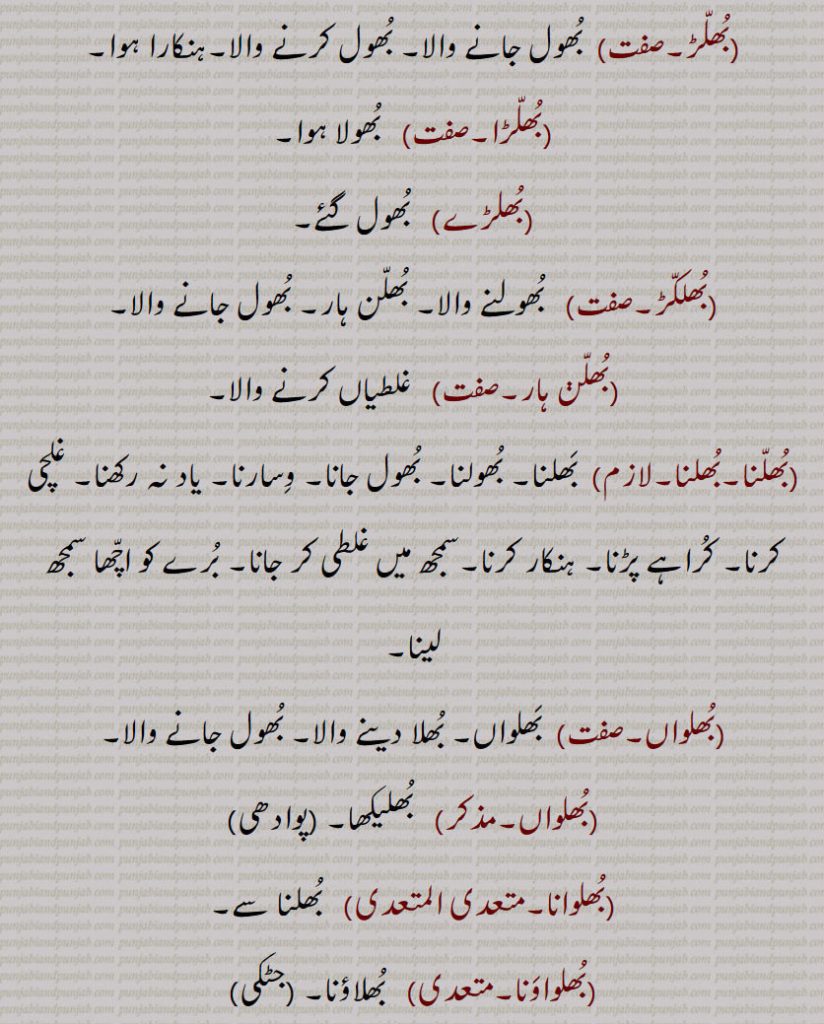 (بُھلّڑ۔صفت) بُھول جانے والا۔ بُھول کرنے والا۔ہنکارا ہوا۔
(بُھلّڑا۔صفت) بُھولا ہوا۔
(بُھلڑے) بُھول گئے۔
(بُھلَکّڑ۔صفت) بُھولنے والا۔ بُھلّن ہار۔ بُھول جانے والا۔
(بُھلّݨ ہار۔صفت) غلطیاں کرنے والا۔
(بُھلّنا۔بُھلنا۔لازم) بَھلنا۔ بُھولنا۔ بُھول جانا۔ وِسارنا۔ یاد نہ رکھنا۔ غلچی
کرنا۔ کُراہے پڑنا۔ ہنکار کرنا۔سمجھ میں غلطی کر جانا۔ بُرے کو اچّھا سمجھ
لینا۔
(بُھلواں۔صفت) بَھلواں۔ بُھلا دینے والا۔ بُھول جانے والا۔
(بُھلواں۔مذکر) بُھلیکھا۔ (پوادھی)
(بُھلوانا۔متعدی المتعدی) بُھلنا سے۔
(بُھلواؤنا۔متعدی) بُھلاؤنا۔ (جٹکی)